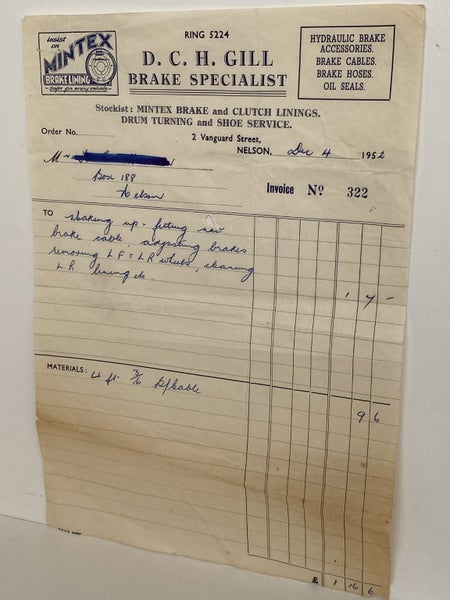 insist on
MINTEX
BRAKE LINING
RING 5224
D. C. H. GILL
BRAKE SPECIALIST
HYDRAULIC BRAKE
ACCESSORIES.
BRAKE CABLES.
BRAKE HOSES.
OIL SEALS.
Stockist: MINTEX BRAKE and CLUTCH LININGS.
DRUM TURNING and SHOE SERVICE.
Order No.
2 Vanguard Street,
NELSON, Dec 4 1952
M
Box 188
Nelson
Invoice No 322
TO
up. fitting new
brake cable. adjusting brakes
removing L F & L R wheels, cleaning
L R lining
1 7 -
MATERIALS:
4 ft
cable
9 6
£ 1 16 6